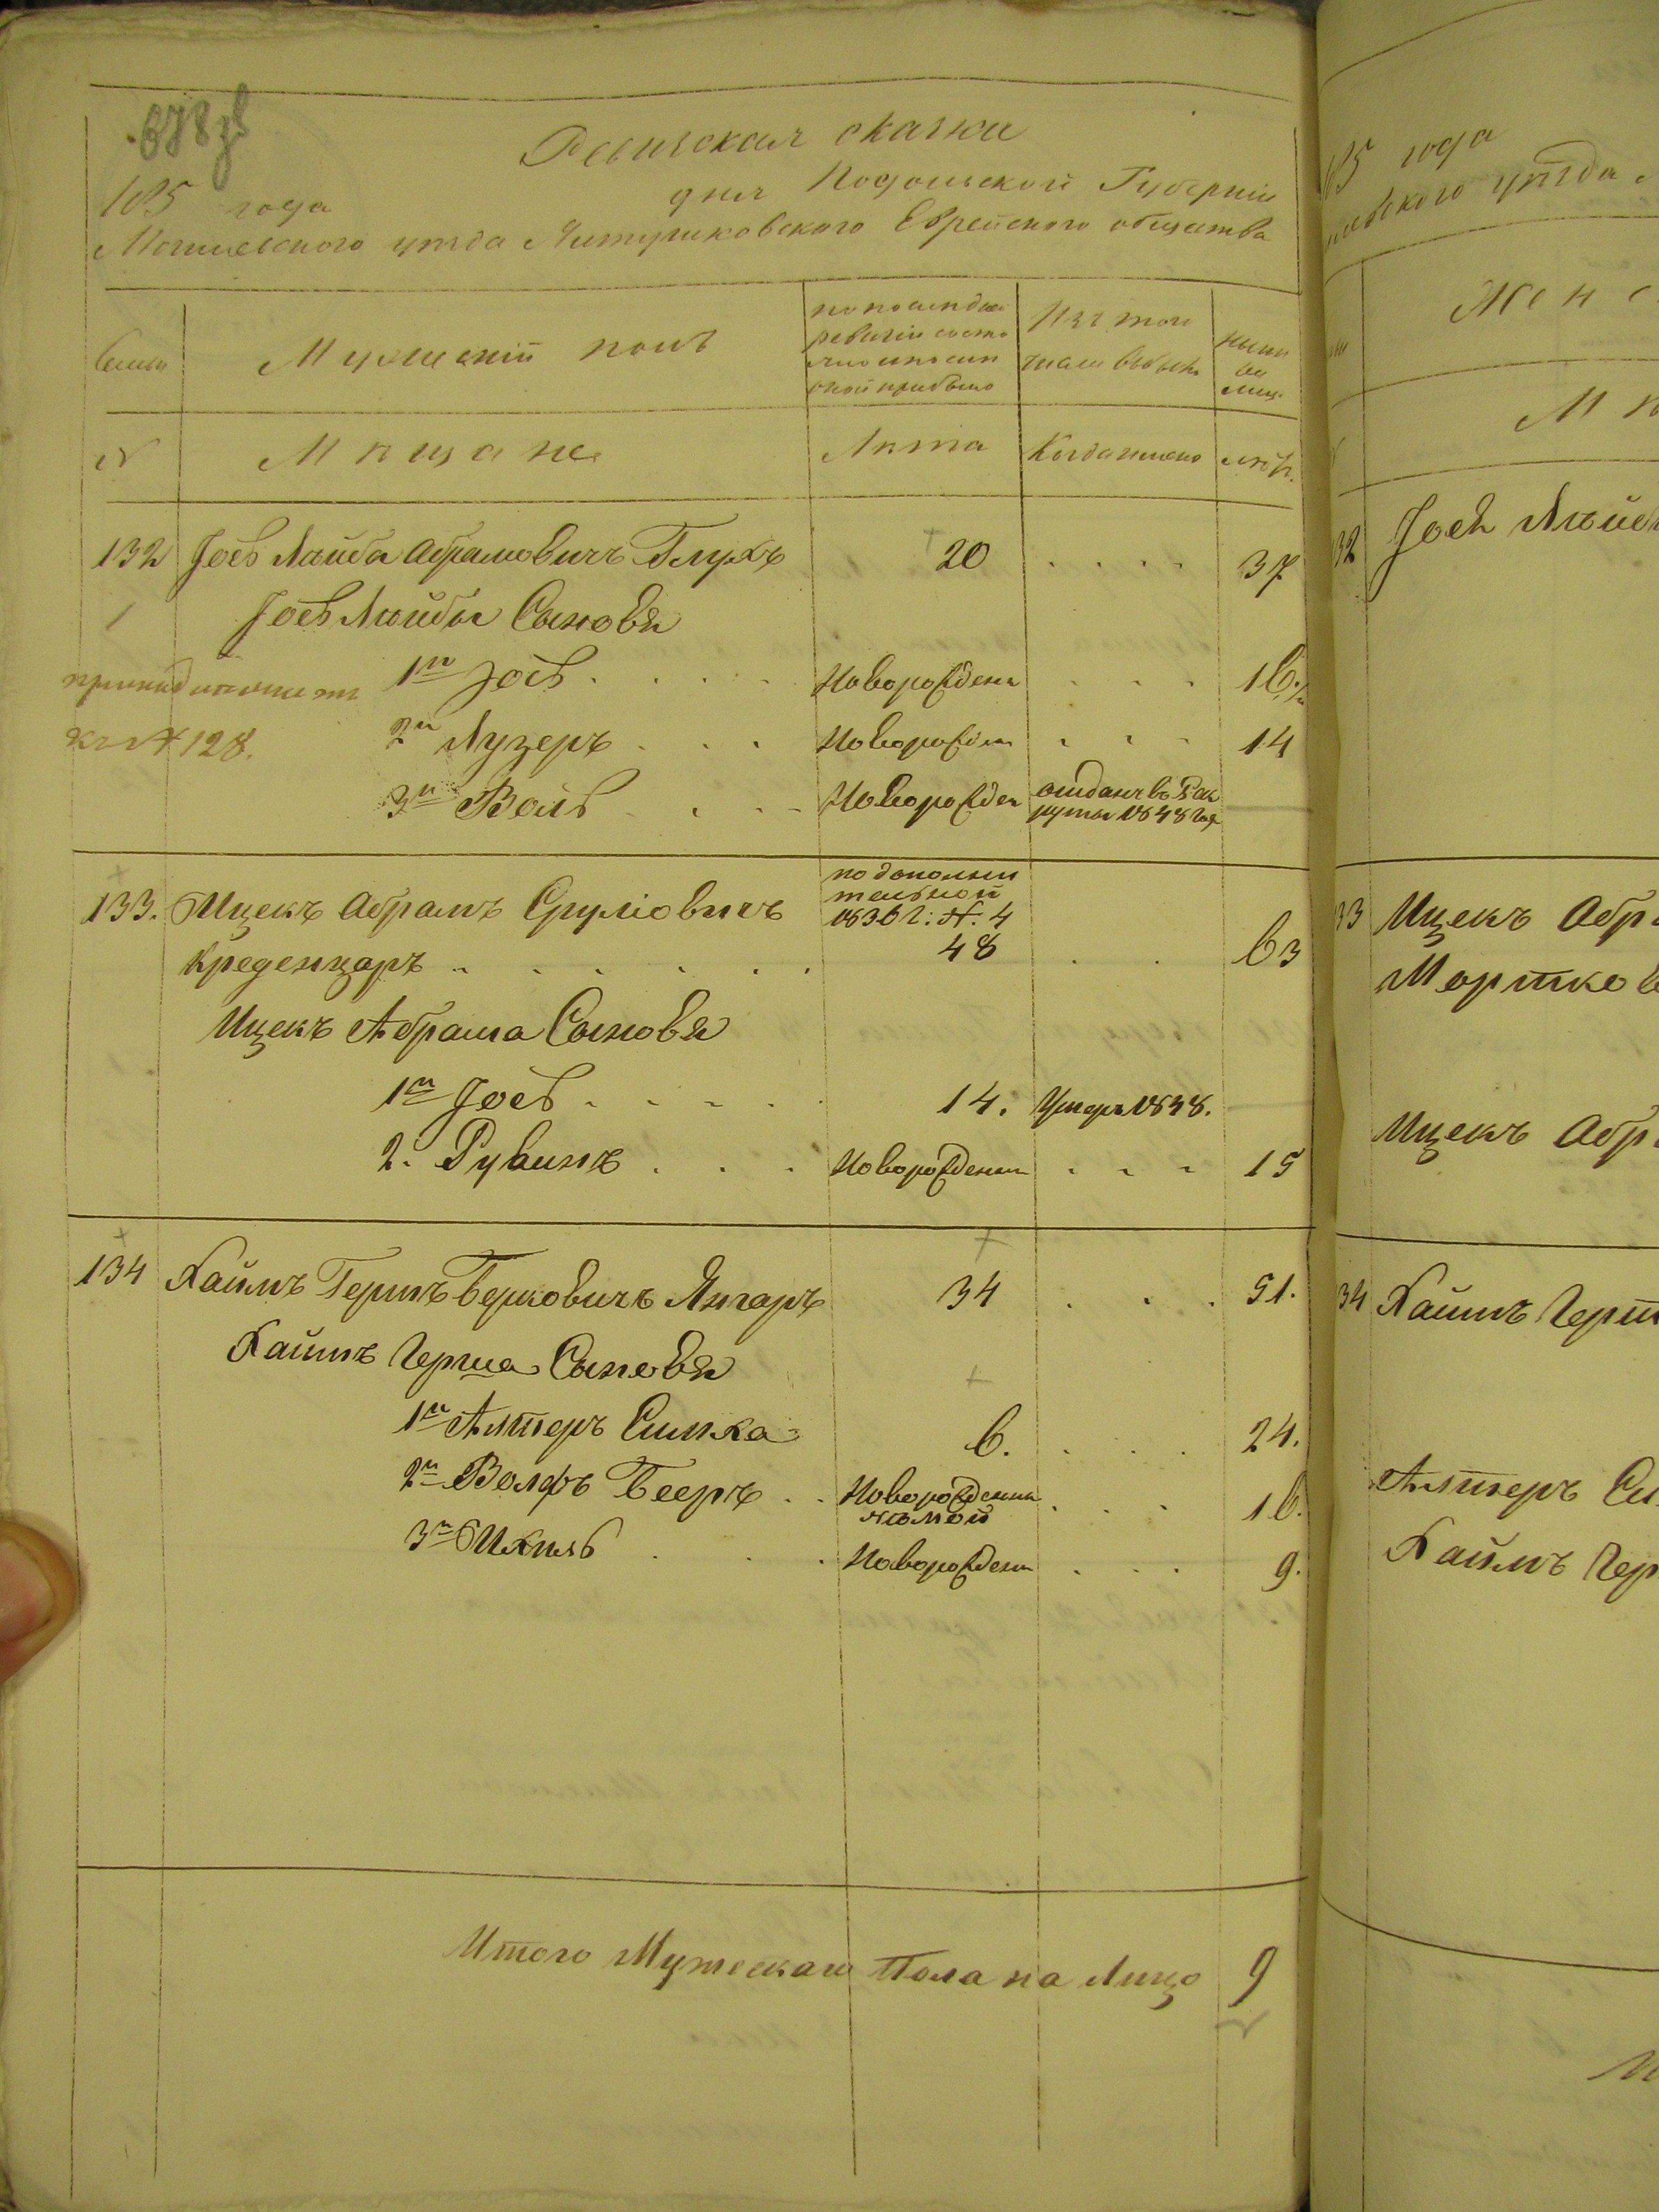 Ревизская сказка
185 года дня Подольской Губернии
Могилевского уезда Литуриковского Еврейского общества
Семьи
Мужеский полъ
по последней ревизии состояло и после оной прибыло
Изъ того числа выбыло
ныне на лицо
№
Мещане
Лета
Когда именно
лета
132 Іосъ Лейба Абрамовичъ Глухъ 20 37
1 Іось Лейбы Сыновья
принадлежитъ 1й Іось Новорожденъ 16 1/2
къ № 128. 2й Лузеръ Новорожден 14
3й Воль Новорожден отданъ въ Рекруты 1848 года
133. Ицекъ Абрамъ Сруліовичъ по дополнительной 1836 г: №. 4
Креденцаръ 48 63
Ицекъ Абрама Сыновья
1й Іось 14. Умеръ 1848.
2. Рувинъ Новорожденъ 15
134 Хаимъ Гершъ Берковичъ Янгаръ 34 51.
Хаимъ Герша Сыновья
1й Алтеръ Симха 6. 24.
2й Волфъ Бееръ Новорожденъ немой 16.
3й Ихиль Новорожден 9.
Итого Мужескаго Пола на Лицо 9
85 года
уезда
Женс
М
32 Іось Лейб
33 Ицекъ Абр
Мортков
Ицекъ Абр
34 Хаимъ Герш
Алтеръ Си
Хаимъ Гер